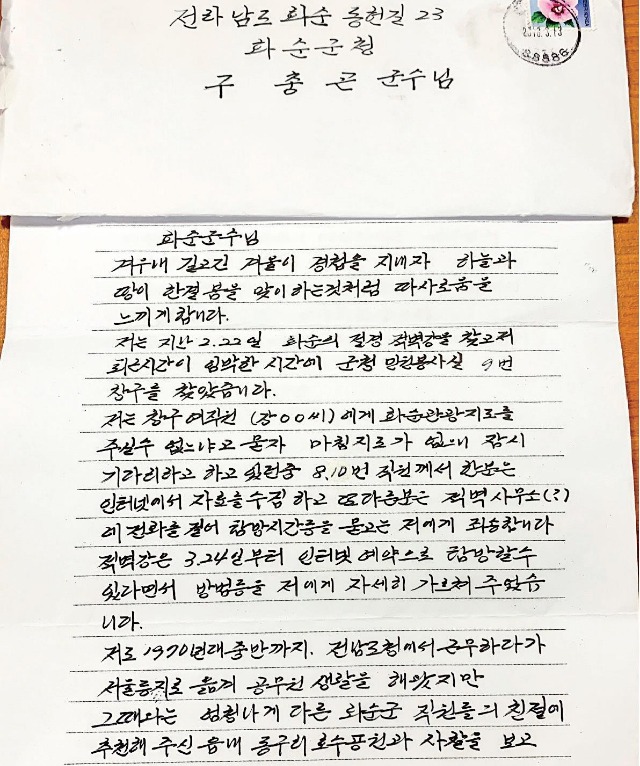 전라남도 화순 동헌길 23
화순군청
구 충 곤 군수님
2018.3.13
화순군수님
겨우내 길고긴 겨울이 경칩을 지내자 하늘과
땅이 한결 봄을 맞이하는것처럼 따사로움을
느끼게 합니다.
저는 지난 2.22일 화순의 절경 적벽강을 찾고저
퇴근시간이 임박한 시간에 군청 민원봉사실 9번
창구를 찾았습니다.
저는 창구 여직원 (강00씨)에게 화순관광지도를
주실수 없느냐고 묻자 마침 지도가 없으니 잠시
기다리라고 하고 있던중 8.10번 직원께서 한분은
인터넷에서 자료를 수집 하고 또다른분은 적벽 사무소(?)
에 전화를 걸어 탐방시간등을 묻고는 저에게 죄송합니다
적벽강은 3.24일부터 인터넷 예약으로 탐방할수
있다면서 방법등을 저에게 자세히 가르쳐 주었습
니다.
저도 1970년대 중반까지. 전남도청에서 근무하다가
서울등지로 옮겨 공무원 생활을 해왔지만
그때와는 엄청나게 다른 화순군 직원들의 친절에
추천해 주신 읍내 동구리 호수공원과 사찰을 보고